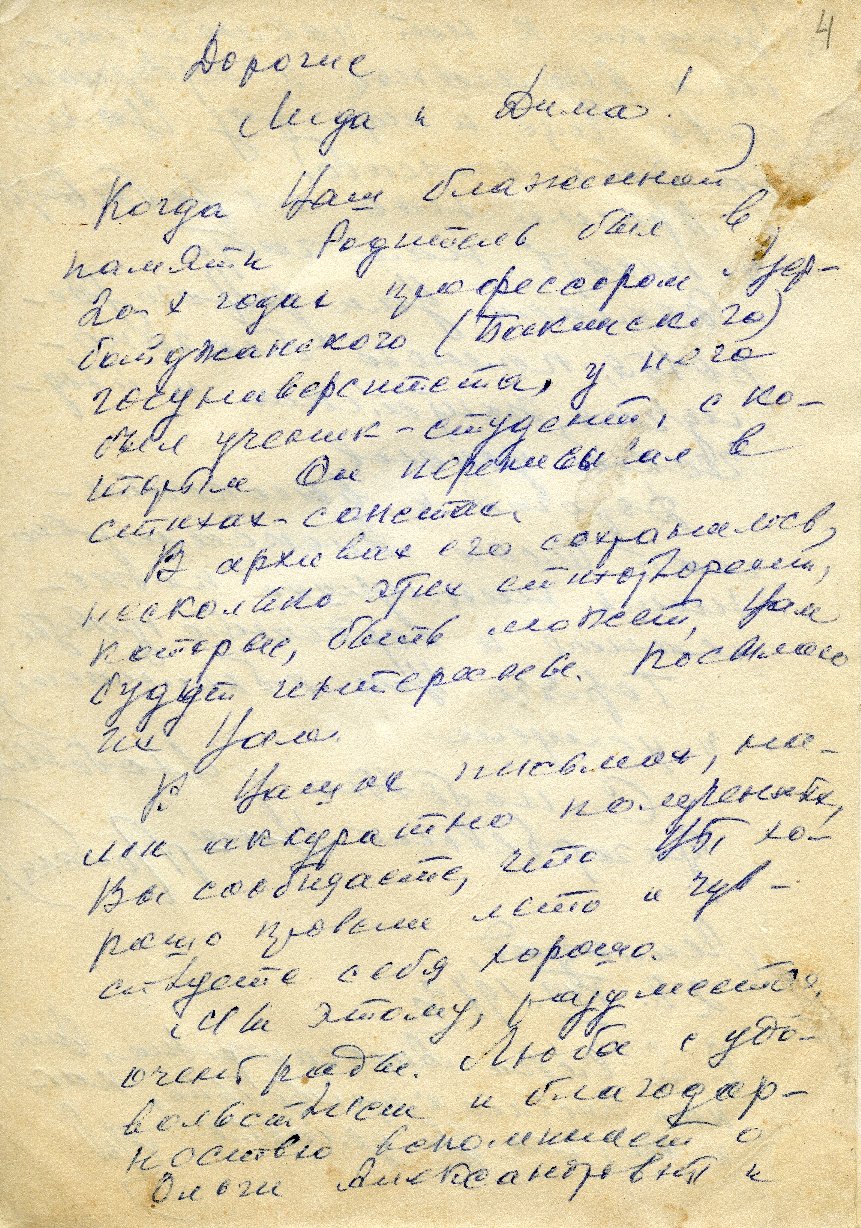 4
Дорогие
Лида и Дима!
Когда Ваш блаженной
памяти Родитель был в
20-х годах профессором Азер-
байджанского (Бакинского)
госуниверситета, у него
был ученик-студент, с ко-
торым Он переписывался в
стихах-сонетах.
В архивах его сохранилось
несколько этих стихотворений,
которые, быть может, Вам
будут интересны. Посылаю
их Вам.
В Ваших письмах, на-
ми аккуратно полученных,
Вы сообщаете, что Вы хо-
рошо провели лето и чув-
ствуете себя хорошо.
Мы этому, разумеется,
очень рады. Люба с удо-
вольствием и благодар-
ностью вспоминает о
Ольги Александровны и